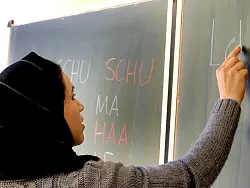 SCHU SCHU
MA
HAA
L